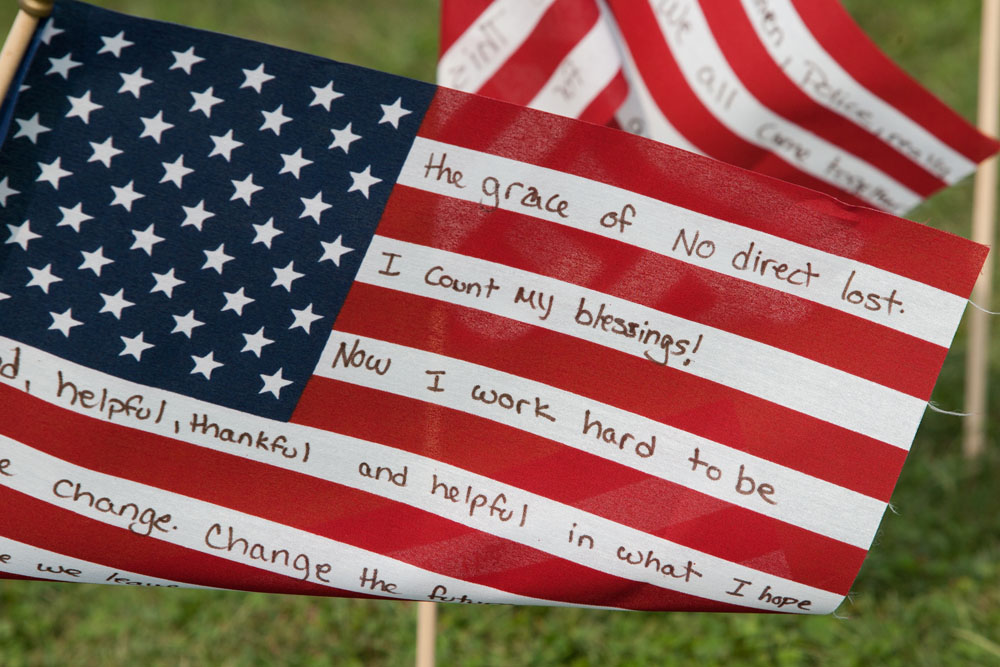 the grace of No direct lost.
I count my blessings!
Now I work hard to be
helpful, thankful and helpful in what I hope
change. Change the future
we leave
We all
Come together
Police